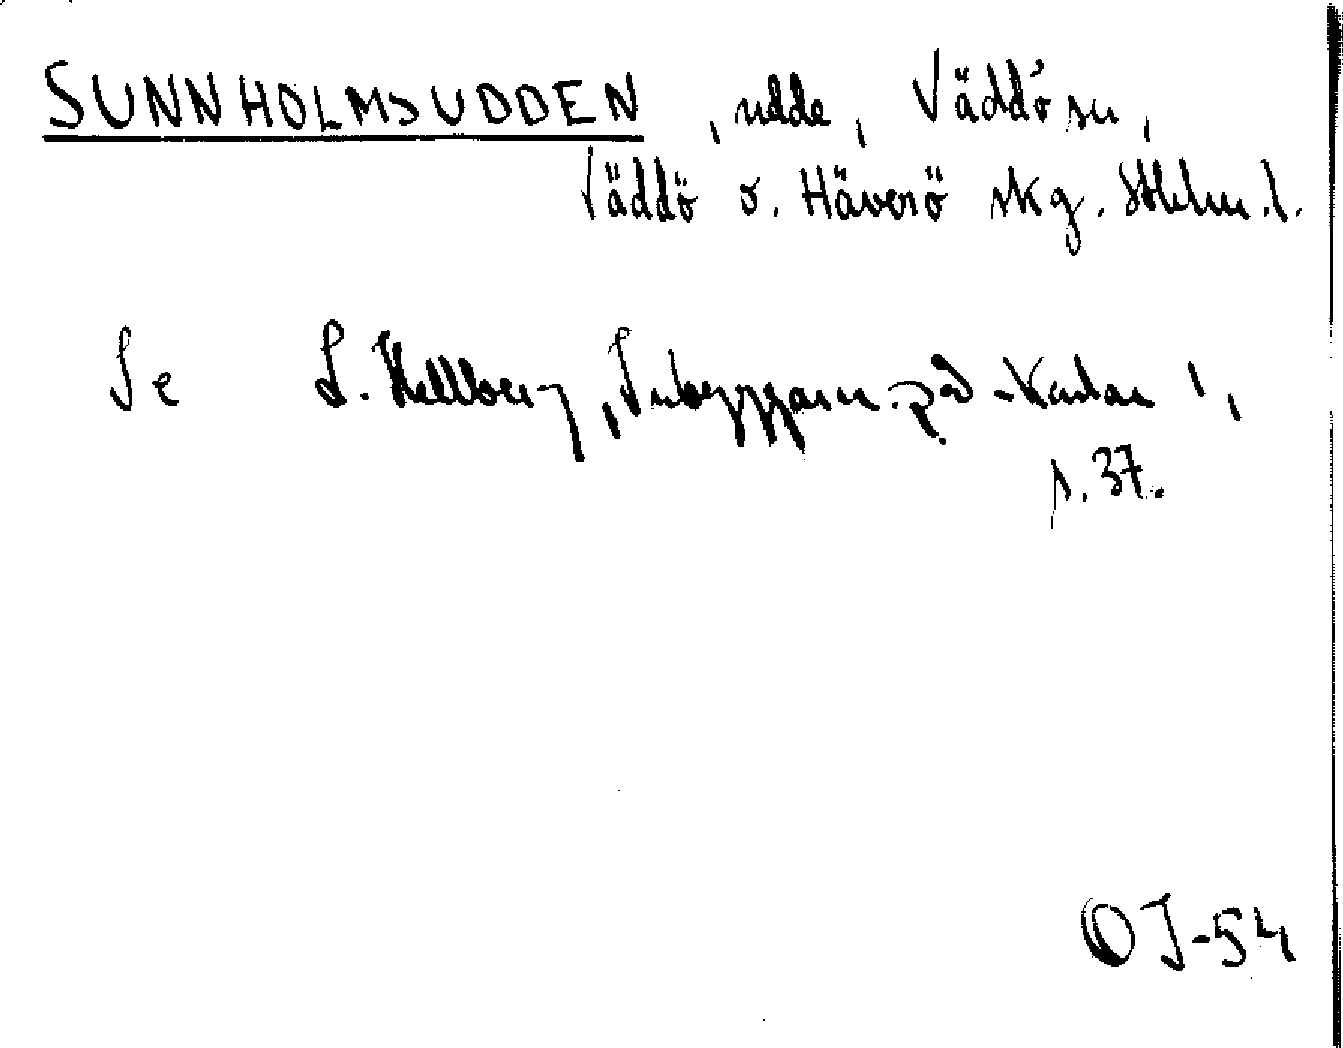 SUNNHOLMSUDDEN, udde, Väddö sn,
Väddö o. Häverö skg. Sthlm. l.
Se L. Hellberg, Inbyggarn. på -karlar 1,
s. 37.
OJ-54